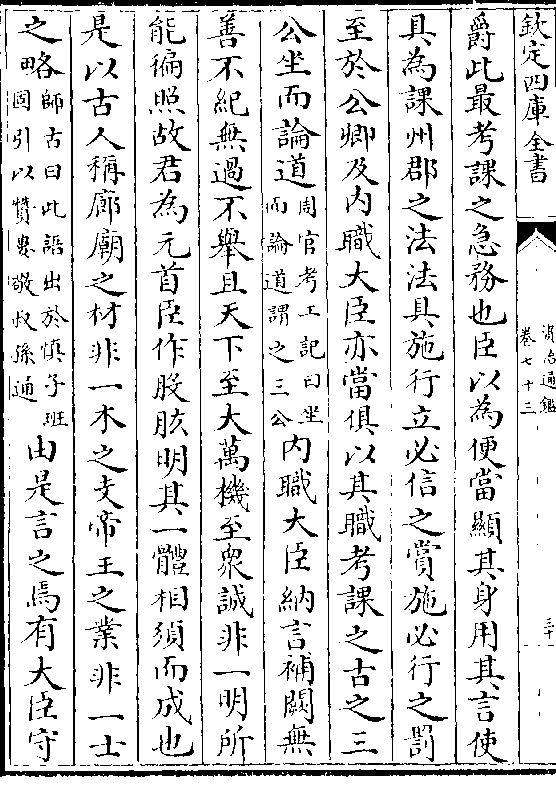 欽定四庫全書
資治通鑑
卷七十三
三十
爵此最考課之急務也臣以為便當顯其身用其言使
具為課州郡之法法具施行立必信之賞施必行之罰
至於公卿及內職大臣亦當俱以其職考課之古之三
公坐而論道周官考工記曰坐而論道謂之三公內職大臣納言補闕無
善不紀無過不舉且天下至大萬機至衆誠非一明所
能徧照故君為元首臣作股肱明其一體相須而成也
是以古人稱廊廟之材非一木之支帝王之業非一士
之略師古曰此語出於慎子班固引以贊婁敬叔孫通由是言之焉有大臣守